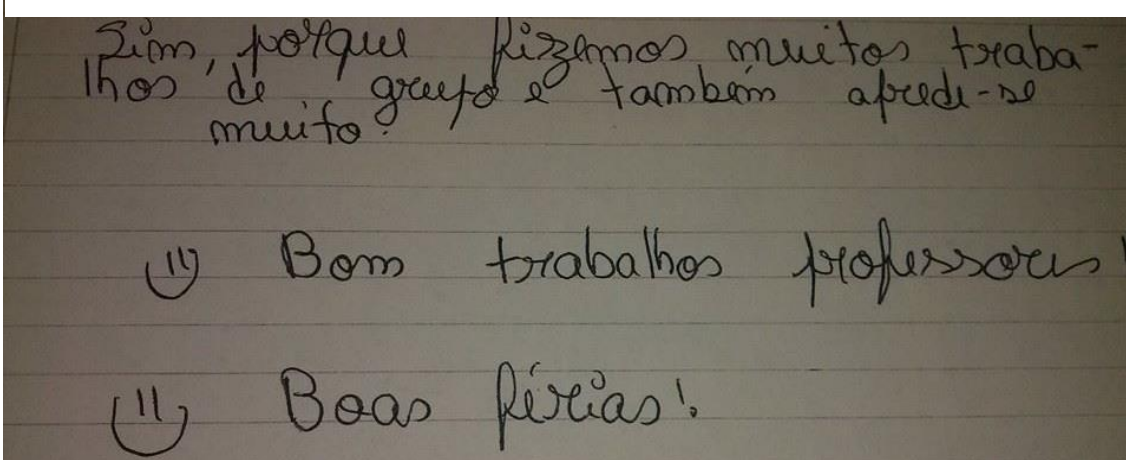 Sim, porque fizemos muitos traba-
lhos de grupo e também apredi-se
muito.
Bom trabalhos professores!
Boas férias!